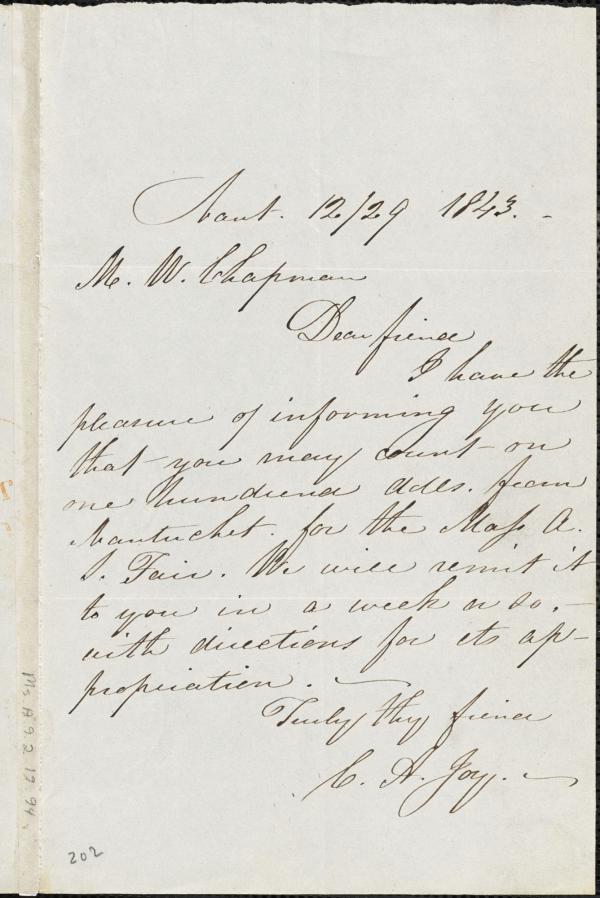 Nant. 12/29 1843. -
M. W. Chapman
Dear friend
I have the
pleasure of informing you
that you may count on
one hundred dolls. from
Nantucket. for the Mass A.
S. Fair. We will remit it
to you in a week or so, -
with directions for its ap-
propriation.
Truly thy friend
C. A. Joy.
Ms. A 9.2 19.94
202